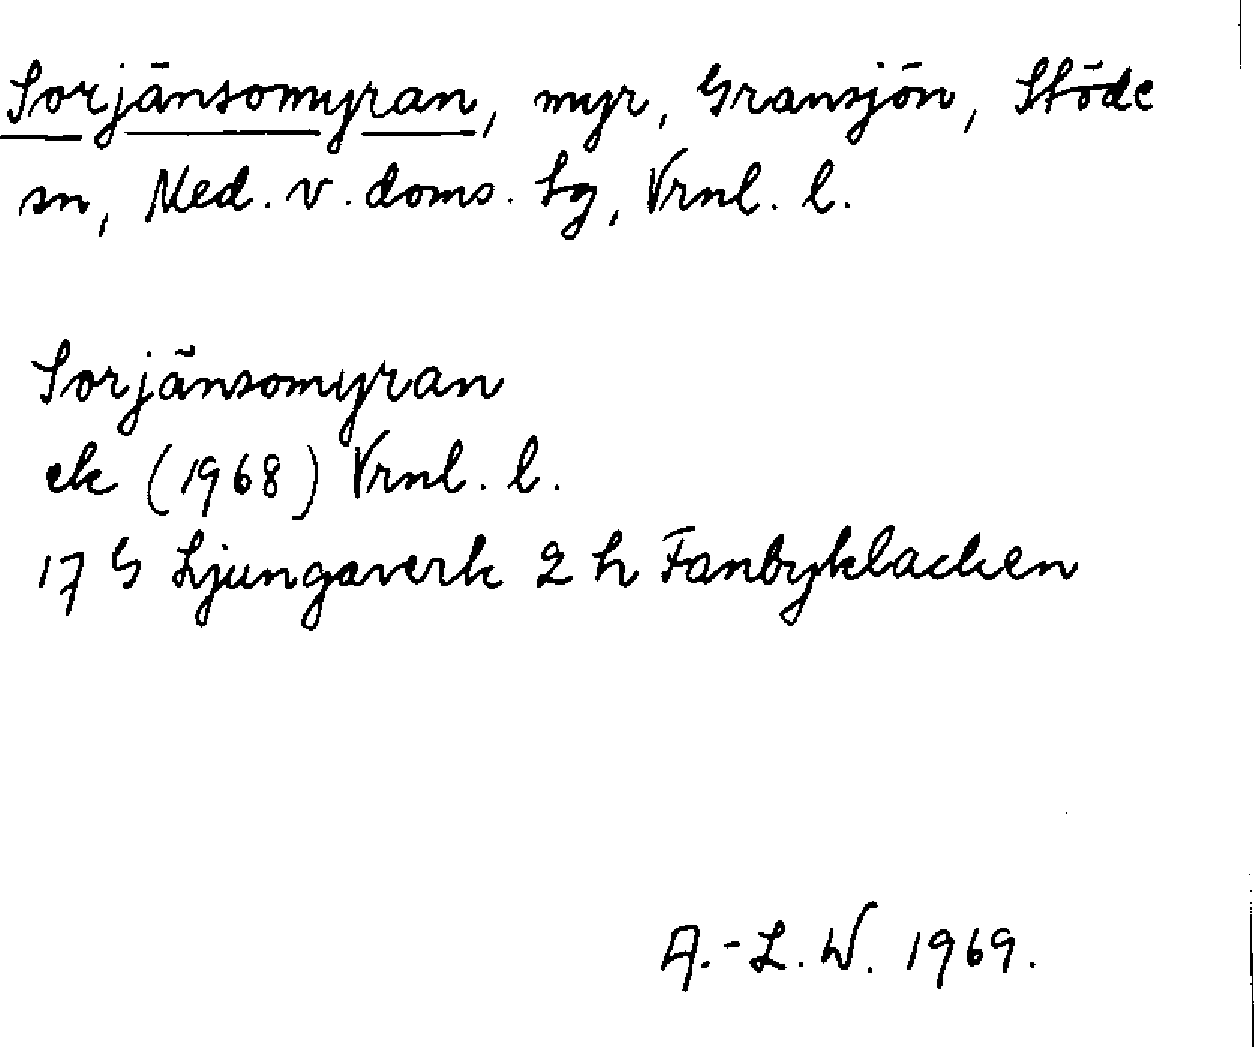 Sorjänsomyran, myr, Gransjön, Stöde
sn, Med. v. doms. tg, Vrnl. l.
Sorjänsomyran
ek (1968) Vrnl. l.
17 G Ljungaverk 2 h Fanbyklacken
A.-L. W. 1969.